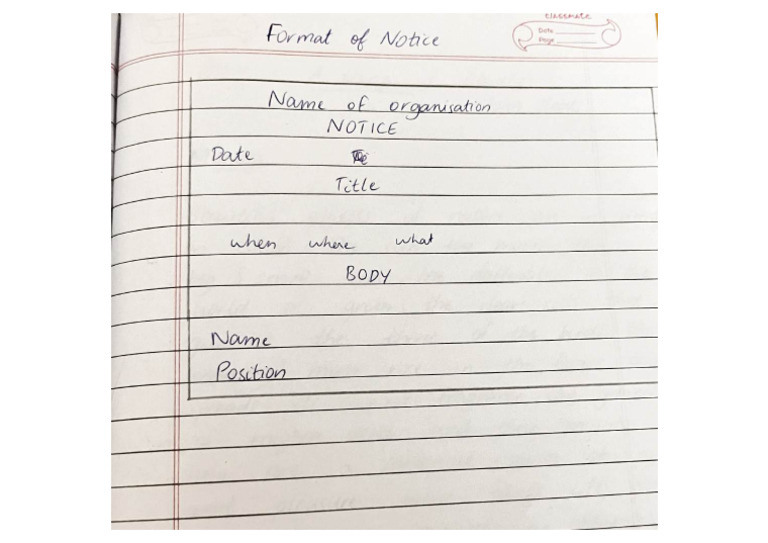 classmate
Date
Page
Format of Notice
Name of organisation
NOTICE
Date
Title
when where what
BODY
Name
Position